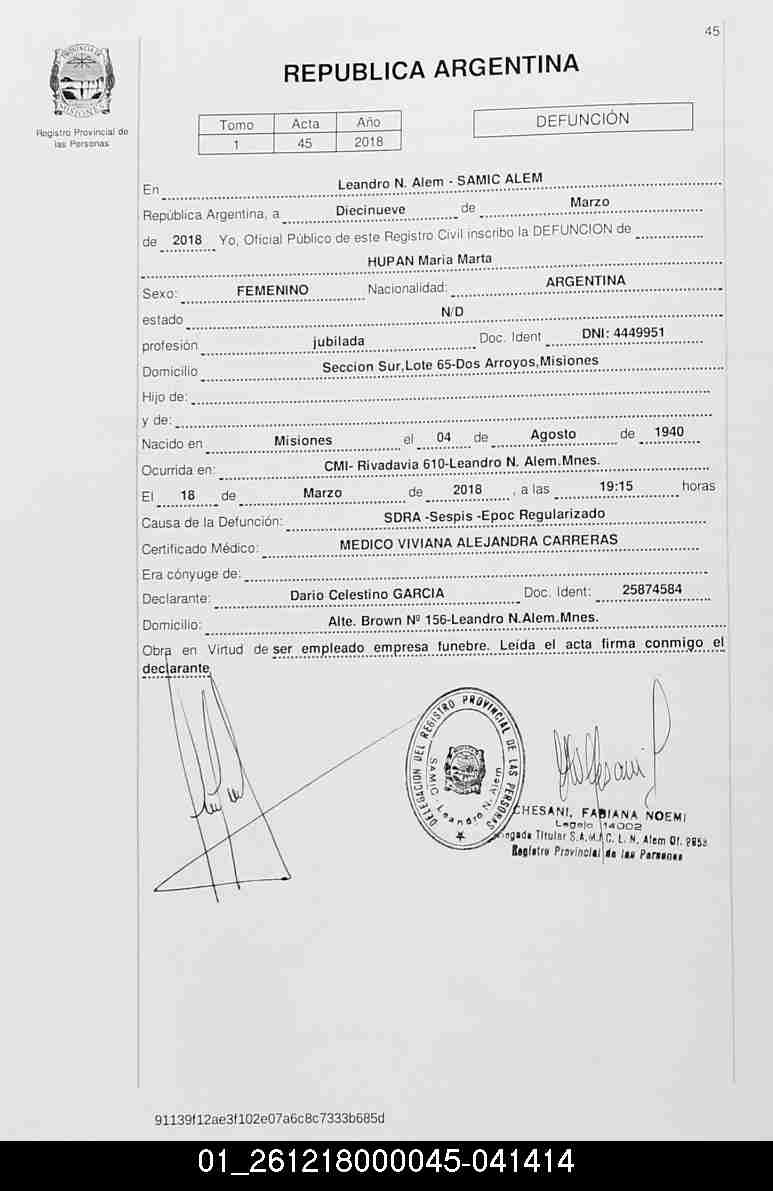 45
PROVINCIA DE
MISIONES
Registro Provincial de
las Personas
REPUBLICA ARGENTINA
Tomo Acta Año
1 45 2018
DEFUNCIÓN
En Leandro N. Alem - SAMIC ALEM
República Argentina, a Diecinueve de Marzo
de 2018 Yo, Oficial Público de este Registro Civil inscribo la DEFUNCION de
HUPAN Maria Marta
Sexo: FEMENINO Nacionalidad: ARGENTINA
estado N/D
profesión jubilada Doc. Ident DNI: 4449951
Domicilio Seccion Sur,Lote 65-Dos Arroyos,Misiones
Hijo de:
y de:
Nacido en Misiones el 04 de Agosto de 1940
Ocurrida en: CMI- Rivadavia 610-Leandro N. Alem.Mnes.
El 18 de Marzo de 2018 , a las 19:15 horas
Causa de la Defunción: SDRA -Sespis -Epoc Regularizado
Certificado Médico: MEDICO VIVIANA ALEJANDRA CARRERAS
Era cónyuge de:
Declarante: Dario Celestino GARCIA Doc. Ident: 25874584
Domicilio: Alte. Brown Nº 156-Leandro N.Alem.Mnes.
Obra en Virtud de ser empleado empresa funebre. Leída el acta firma conmigo el
declarante
DELEGACION DEL REGISTRO PROVINCIAL DE LAS PERSONAS
SAMIC - Leandro N. Alem
CHESANI, FABIANA NOEMI
Legajo 14002
Titular S.A.M.I.C. L. N. Alem Of.
Registro Provincial de las Personas
91139f12ae3f102e07a6c8c7333b685d
01_261218000045-041414